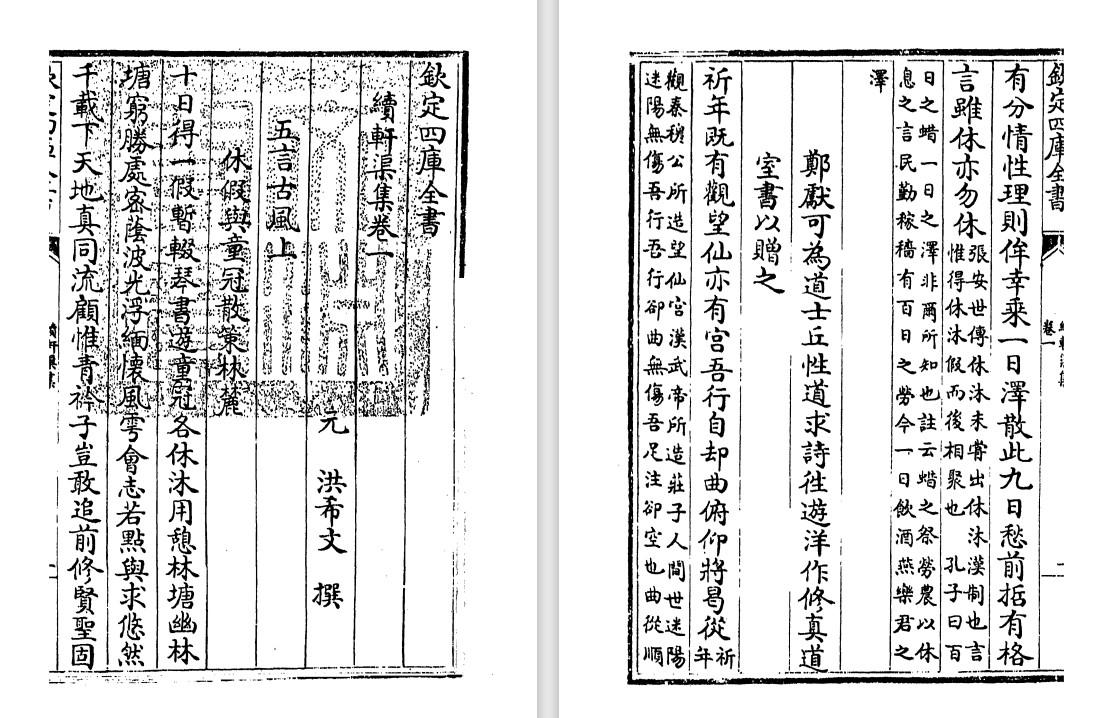 欽定四庫全書
續軒渠集卷一
元 洪希文 撰
五言古風上
休假與童冠散策林麓
十日得一假暫輟琴書遊童冠各休沐用憩林塘幽林
塘窮勝處密蔭波光浮緬懷風雩會志若點與求悠然
千載下天地真同流顧惟青衿子豈敢追前修賢聖固
欽定四庫全書
卷一
有分情性理則侔幸乘一日澤散此九日愁前括有格
言雖休亦勿休
張安世傳休沐未嘗出休沐漢制也言
惟得休沐假而後相聚也 孔子曰百
日之蜡一日之澤非爾所知也註云蜡之祭勞農以休
息之言民勤稼穡有百日之勞今一日飲酒燕樂君之
澤
鄭獻可為道士丘性道求詩徃遊洋作修真道
室書以贈之
祈年既有觀望仙亦有宮吾行自却曲俯仰將曷從
祈
年
觀秦穆公所造望仙宮漢武帝所造莊子人間世迷陽
迷陽無傷吾行吾行卻曲無傷吾足注卻空也曲從順